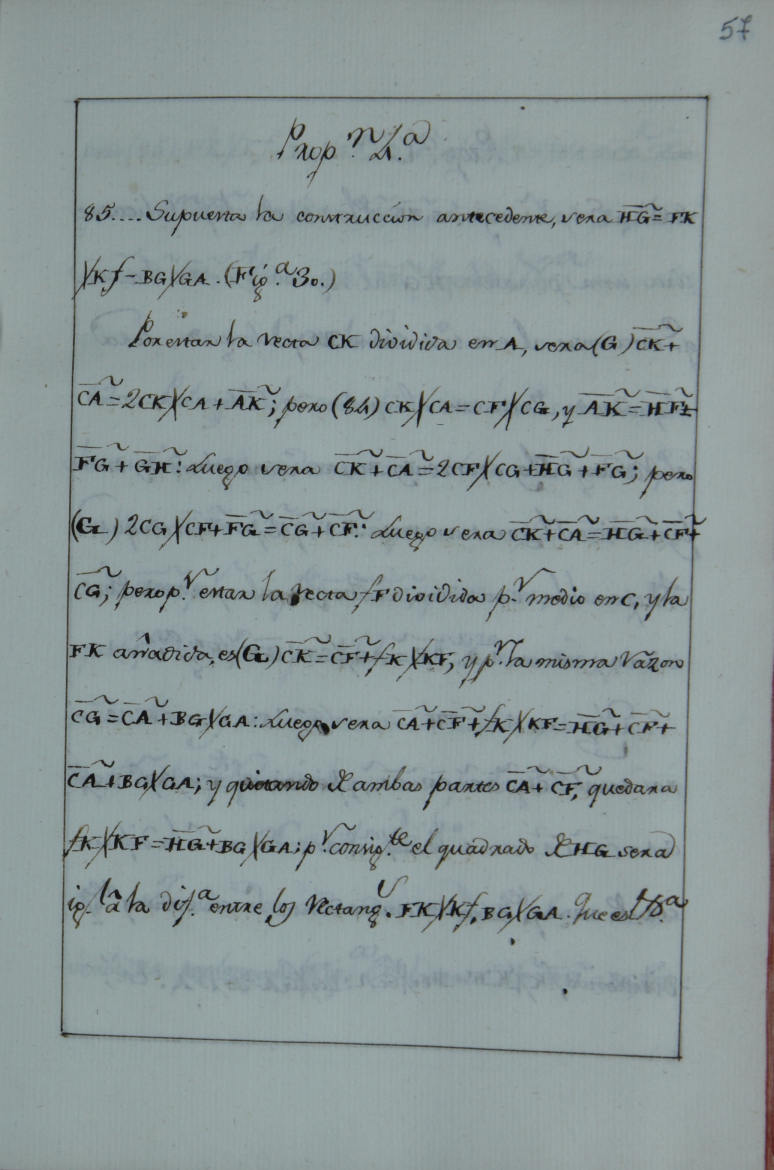 57
Prop.n 4.a
85.... Supuesta la construccion antecedente, sera H͞G͂ = FK
╳Kf - BG╳GA. (Fig.a 30.)
Por estar la recta CK dividida en A, sera (G) C͞K͂ +
C͞A͂ = 2CK╳CA + A͞K͂; pero (84) CK╳CA = CF╳CG, y A͞K͂ = H͞F͂ =
F͞G͂ + G͞H͂: Luego sera C͞K͂ + C͞A͂ = 2CF╳CG + H͞G͂ + F͞G͂; pero
(GL) 2CG╳CF + F͞G͂ = C͞G͂ + C͞F͂: Luego sera C͞K͂ + C͞A͂ = H͞G͂ + C͞F͂ +
C͞G͂; pero p.r estar la recta fF dividida p.r medio en C, y la
FK añadida, es (GL) C͞K͂ = C͞F͂ + fK╳KF, y p.r la misma razon
C͞G͂ = C͞A͂ + BG╳GA: Luego sera C͞A͂ + C͞F͂ + fK╳KF = H͞G͂ + C͞F͂ +
C͞A͂ + BG╳GA; y quitando de ambas partes C͞A͂ + C͞F͂, quedara
fK╳KF = H͞G͂ + BG╳GA; p.r consig.te el quadrado de HG sera
ig.l â la dif.a entre los Rectang.s FK╳Kf, BG╳GA. Que es